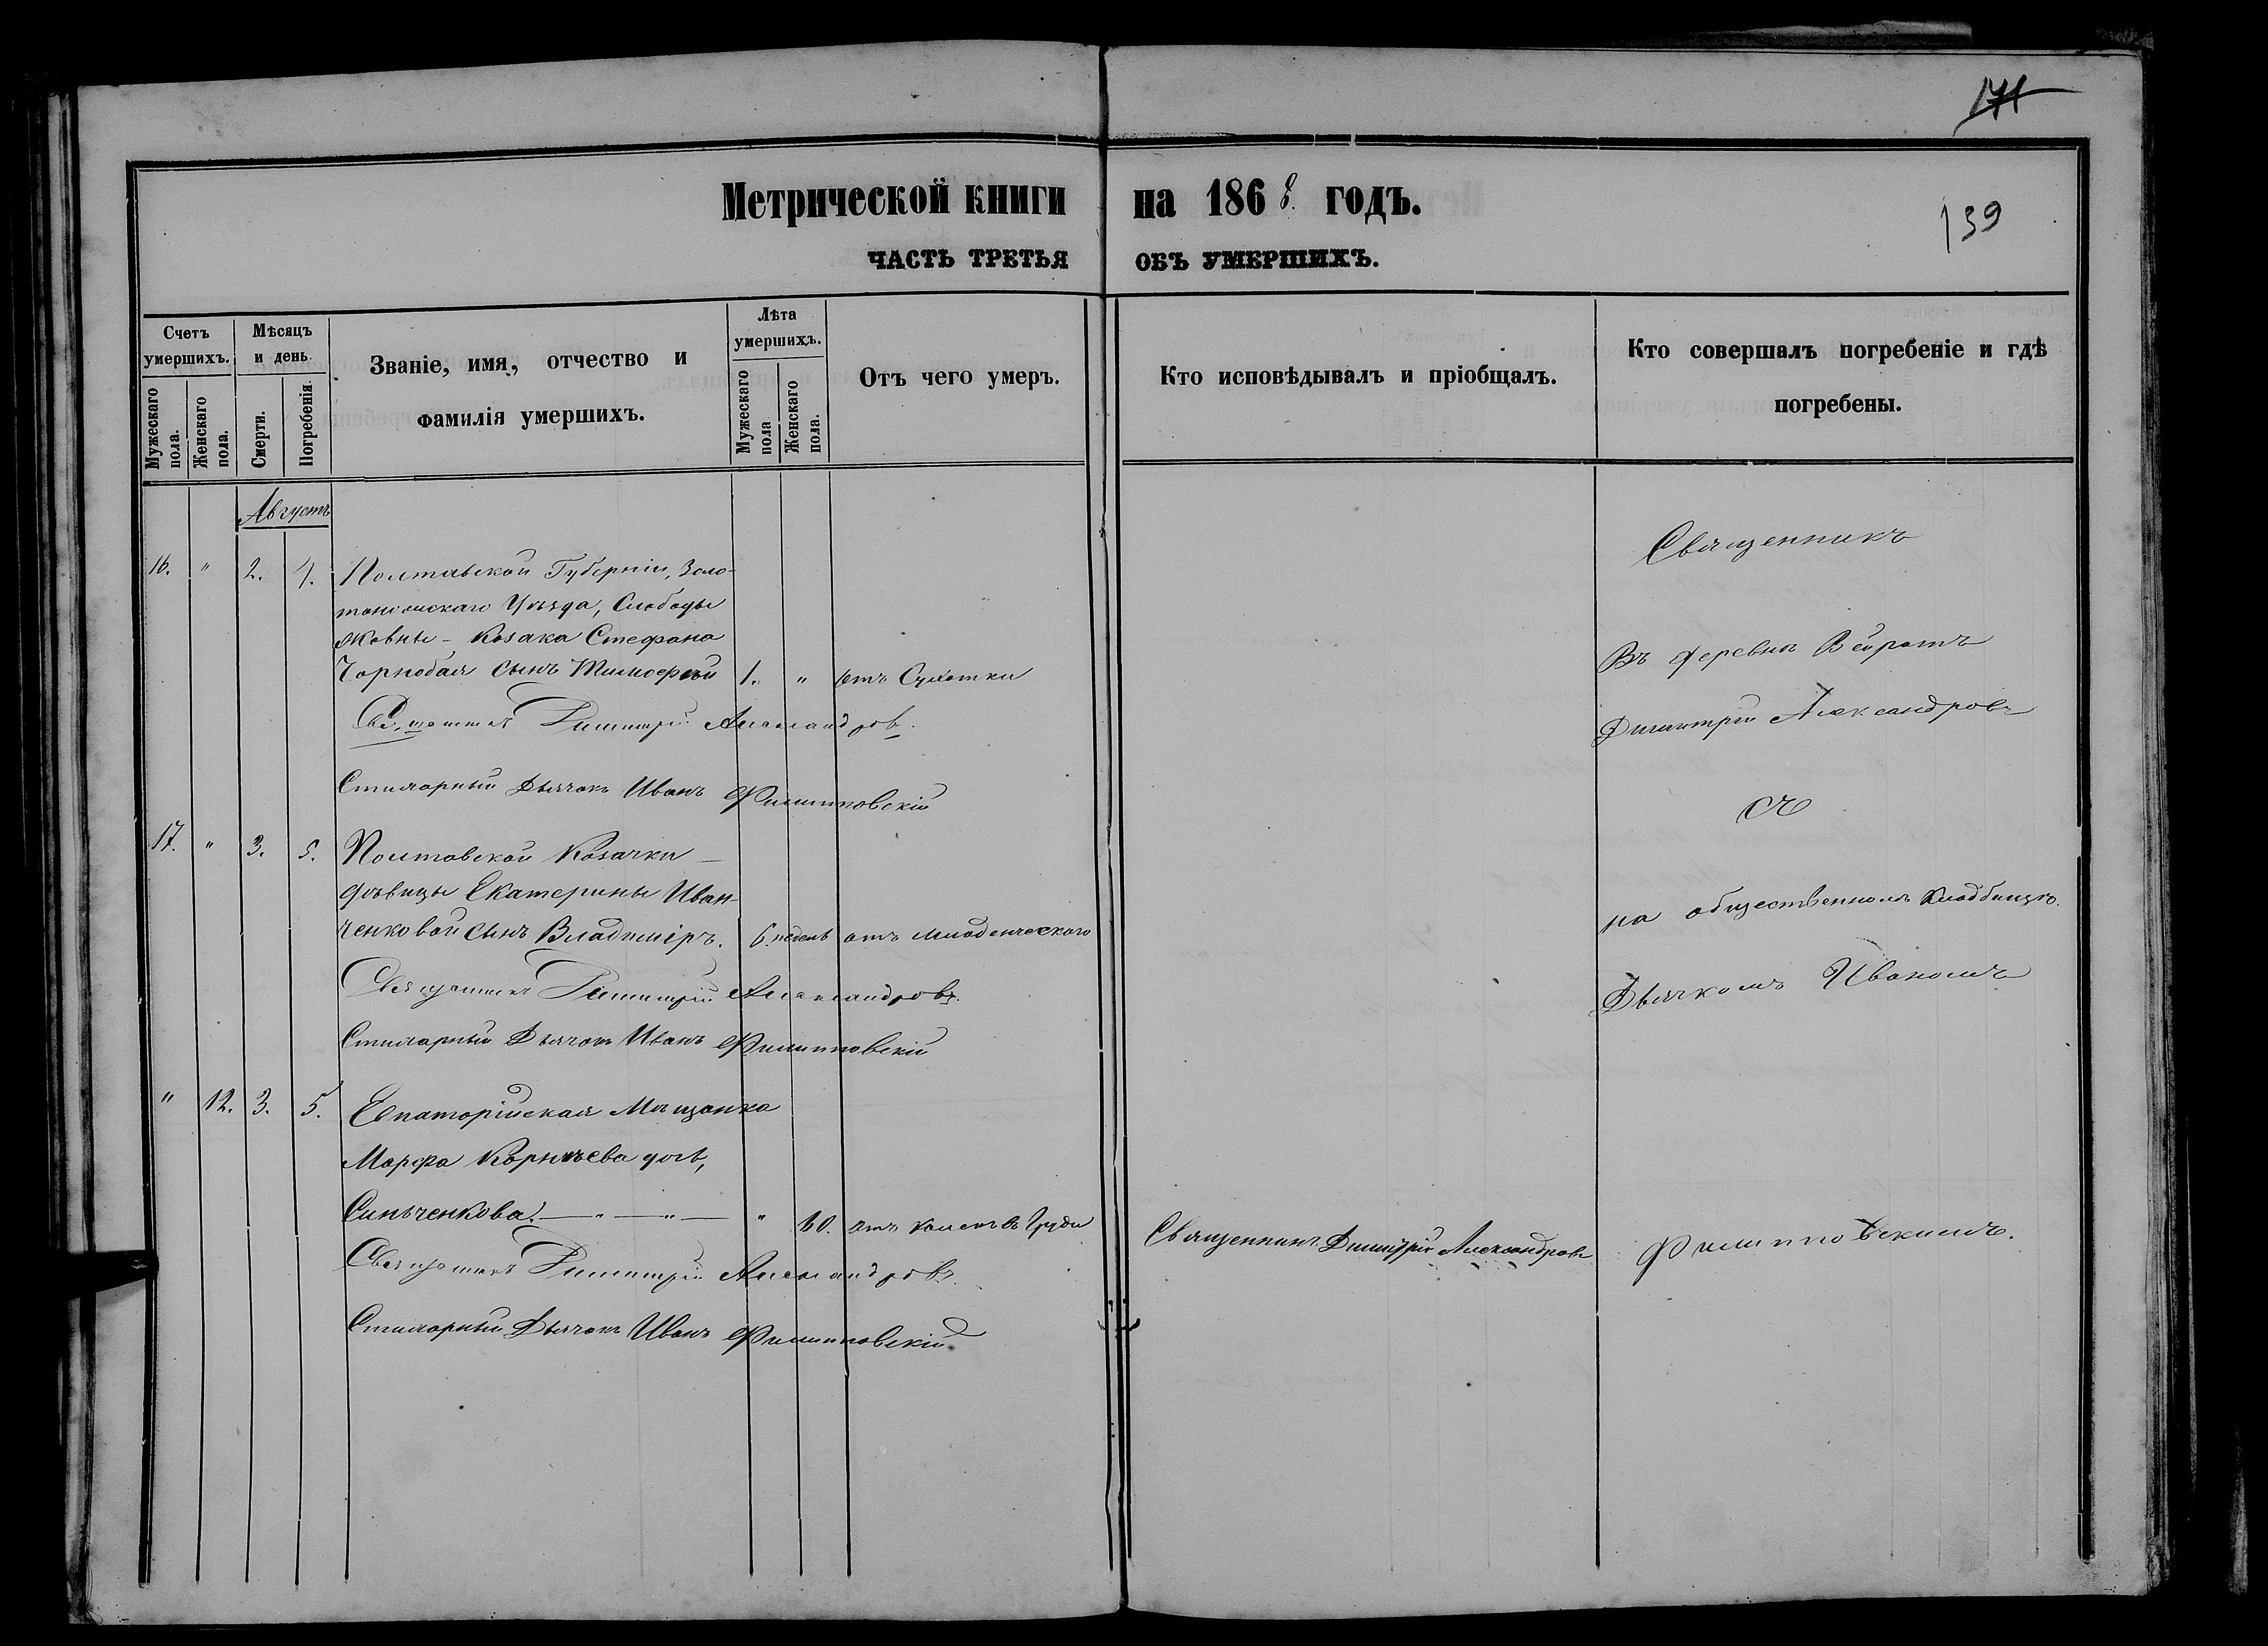 171
Метрической книги на 1868. годъ.
139
ЧАСТЬ ТРЕТЬЯ ОБЪ УМЕРШИХЪ.
Счетъ умершихъ.
Мужескаго пола.
Женскаго пола.
Мѣсяцъ и день
Смерти.
Погребенія.
Званіе, имя, отчество и фамилія умершихъ.
Лѣта умершихъ.
Мужескаго пола
Женскаго пола.
Отъ чего умеръ.
Кто исповѣдывалъ и пріобщалъ.
Кто совершалъ погребеніе и гдѣ погребены.
Августъ
16. " 2. 4. Полтавской Губерніи, Золо-
тоношскаго Уѣзда, Слободы
Козака Стефана
Чорнобая сынъ Тимофей 1. " отъ Сухотки
Священникъ Димитрій Александровъ.
Стихарный Дьячокъ Иванъ Филипповскій
17. " 3. 5. Полтавской Козачки
дѣвицы Екатерины Иван-
ченковой сынъ Владиміръ. 6. недель отъ младенческаго
Священникъ Димитрій Александровъ.
Стихарный Дьячокъ Иванъ Филипповскій
" 12. 3. 5. Евпаторійская Мѣщанка
Марфа Корнѣева доч,
Синьченкова. — " — " — " 60. отъ колекъ въ Груди
Священникъ Димитрій Александровъ.
Стихарный Дьячокъ Иванъ Филипповскій
Священникъ Димитрій Александровъ
Священникъ
Въ деревнѣ
Димитрій Александровъ
съ
на общественномъ Кладбищѣ.
Дьячкомъ Иваномъ
Филипповскимъ.